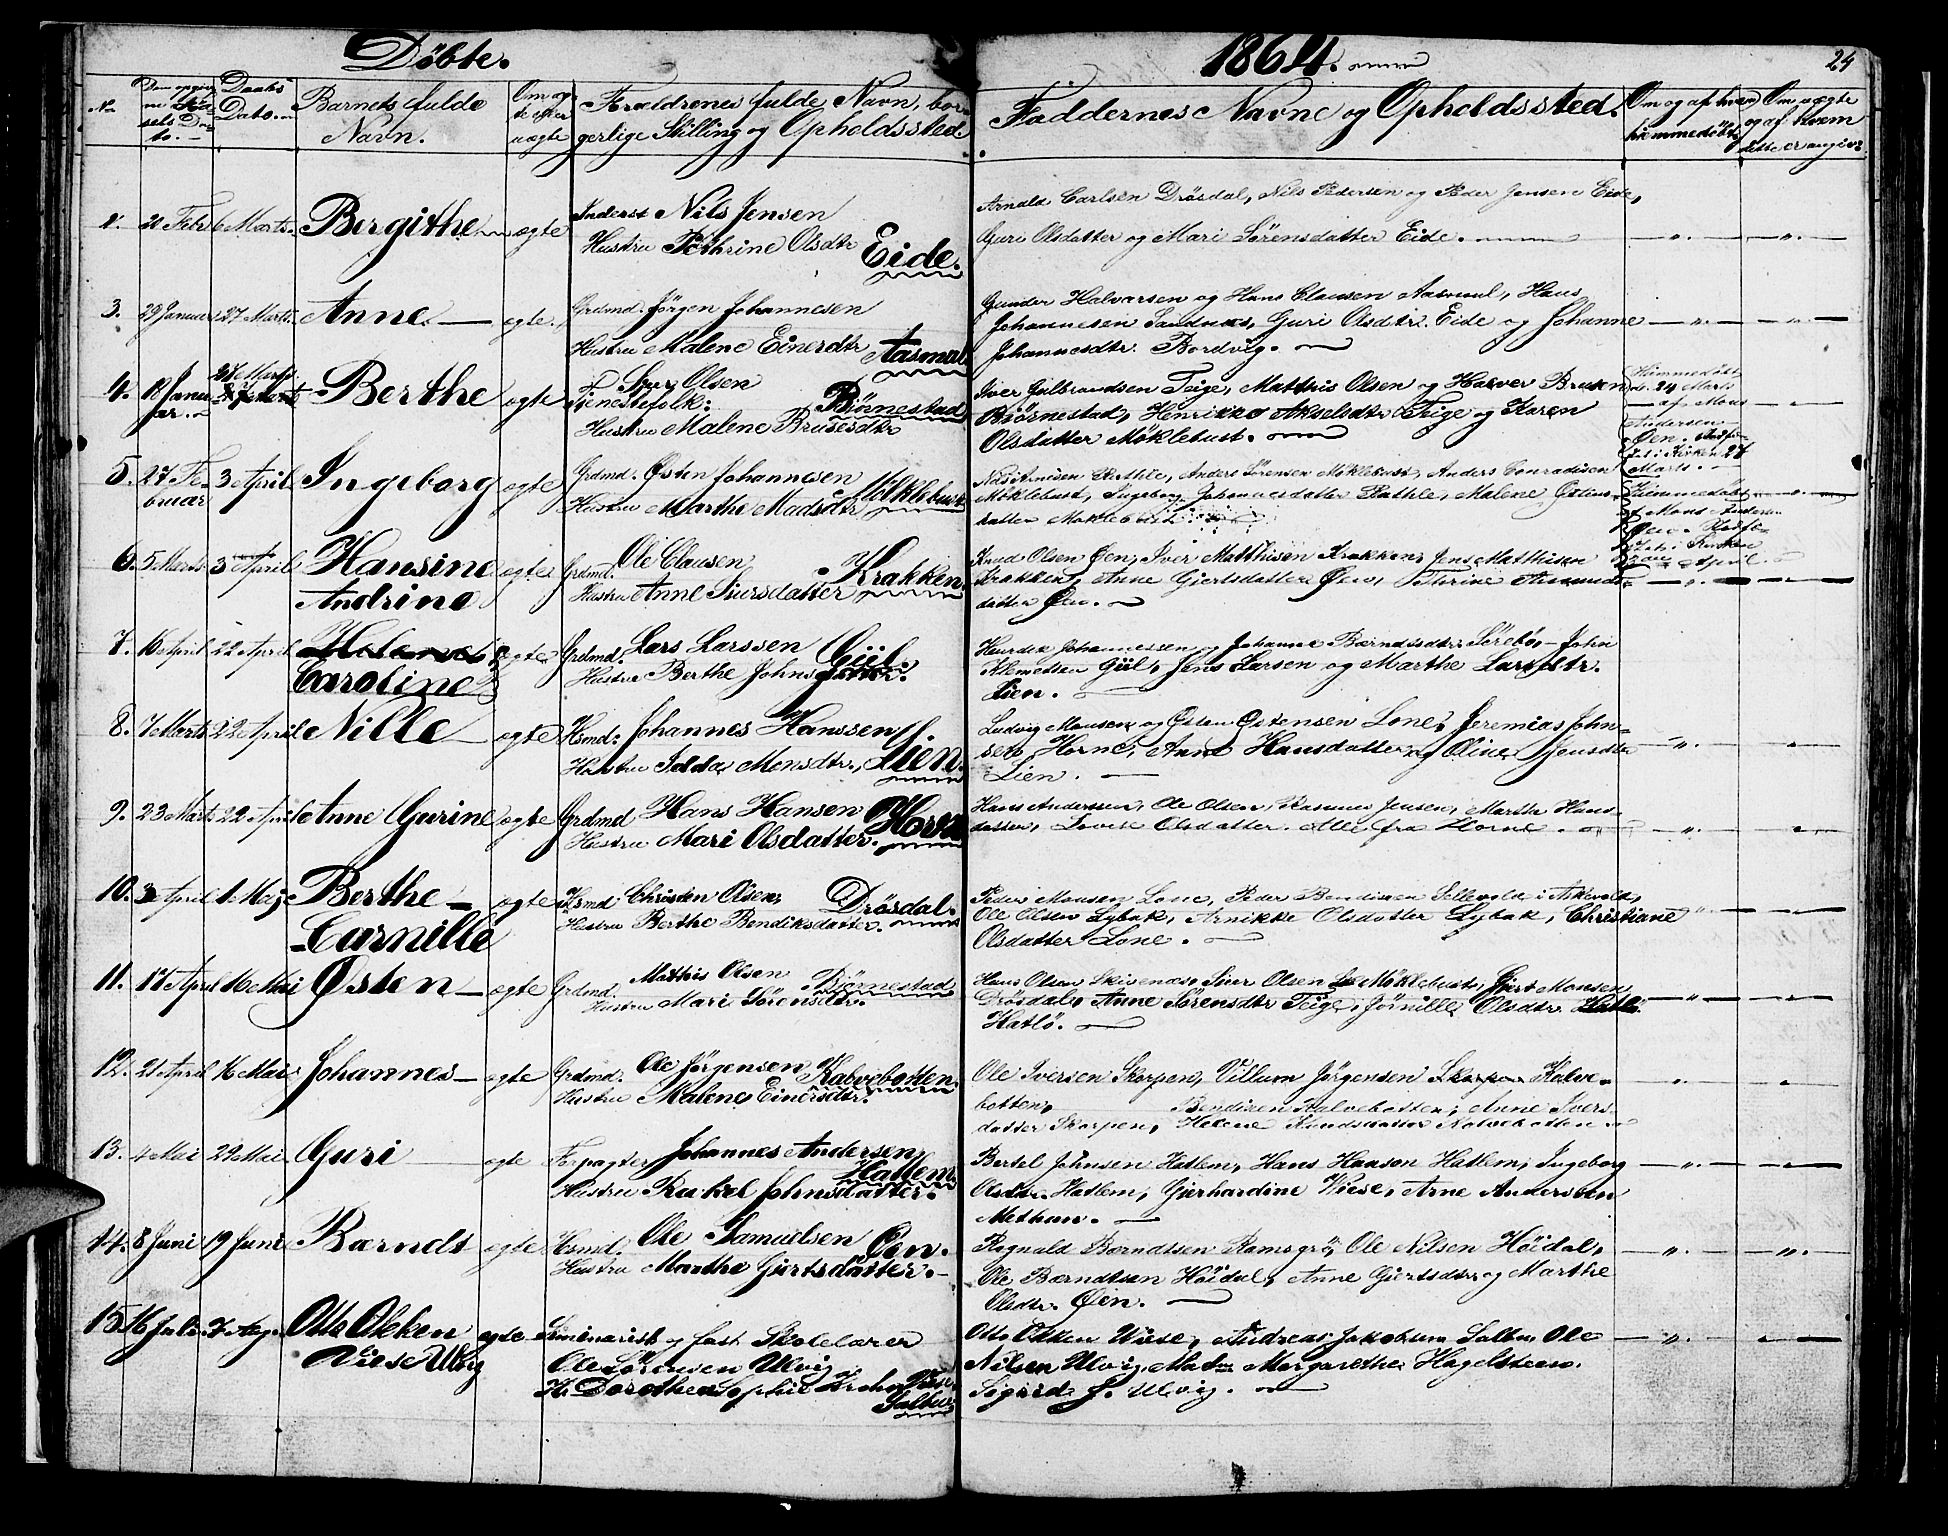 Döbte.
1864.
24
No
Daabs Dato.
Barnets fulde Navn.
Forældrenes fulde Navn, borgerlige Stilling og Opholdssted.
Faddernes Navne og Opholdssted.
Om og af hvem hjemmedöbt
Om uægte og af hvem dette er angivet
2. 20 Febr 6 Marts. Bergithe ægte Inderst Nils Jensen
Hustru Olsdtr Eide.
Arnald Carlsen Drösdal, Nils Pedersen og Peder Jensen Eide,
Guri Olsdatter og Mari Sörensdatter Eide. — „. — „. —
3. 29 Januar 27 Marts. Anne. — ægte. Grdmd. Jörgen Johannesen
Hustru Malene Einersdtr Aasmul.
Gunder Halvarsen og Hans Clausen Aasmul, Hans
Johannesen Sandnæs, Guri Olsdtr. Eide og Johanne — „. — „. —
Johannesdtr. Bordvig.
4. Januar. 28 Marts Berthe ægte Iver Olsen
Tjenestefolk: Björnestad
Hustru Malene Brutesdtr
Iver Gulbrandsen Teige, Matthis Olsen og Halver Brusen
Björnestad, Henrikke Akselsdtr Teige og Karen
Olsdatter Möklebust.
Hjemmedöbt
d. 24 Marts
af Mons
Andersen
Öen.
i Kirken 28
Marts.
5. 27 Februar 3 April Ingeborg ægte Grdmd. Östen Johannesen
Hustru Marthe Madsdtr. Möklebust
Anders Sörensen Möklebust, Anders Conradisen
Möklebust, Ingeborg Johannesdatter Rathle, Malene Östens-
datter Möklebust.
Hjemmedöbt
af Mons Andersen
Öen.
i Kirken
3die April.
6. 5 Marts 3 April Hansine ægte Grdmd. Ole Clausen
Andrine Hustru Anne Iversdatter Krakken
Knud Olsen Öen, Iver Matthisen Krakken, Jens Mathisen
Krakken, Anne Gjertsdatter Öen,
datter Öen.
7. 16 April 22 April ægte Grdmd. Lars Larssen
Caroline Hustru Berthe Johnsdatter. Gjil.
Henrik Johannessen og Johanne Bærndtsdtr. Sörebö, John
Klemetsen Gjil, Jens Larsen og Marthe Larsdtr.
Lien.
8. 7 Marts 22 April Nille — ægte Hsmd: Johannes Hanssen
Hustru Monsdtr. Lien.
Ludvig Monsen og Östen Östensen Lone, Jeremias John-
sen Horne, Anne Hansdatter og Oline Jensdtr
Lien.
9. 23 Marts 22 April Anne Gurine ægte Grdmd Hans Hansen
Hustru Mari Olsdatter. Horne
Hans Anderssen, Ole Olsen, Rasmus Jensen, Martha Hans-
datter, Lovise Olsdatter. Alle fra Horne.
10. 3 April 1 Mai Berthe — ægte Hsmd: Christen Olsen,
Carnille Hustru Berthe Bendiksdatter. Drösdal.
Peder Monsen Lone, Peder Bendixen Sellevold i Askevold,
Ole Olsen Lybak, Arnikke Olsdatter Lybak, Christiane
Olsdatter Lone.
11. 17 April 16 Mai Östen — ægte Grdmd. Mathis Olsen
Hustru Mari Sörensdtr. Björnestad
Hans Olsen Skivenæs, Iver Olsen Möklebust, Gjert Monsen
Drösdal, Anne Sörensdtr Teige, Jörnille Olsdtr.
Hatlö.
12. 21 April 16 Mai Johannes — ægte Grdmd. Ole Jörgensen
Hustru Malene Einersdtr. Kalvebotten.
Ole Iversen Skorpen, Villum Jörgensen Skorpen Kalve-
botten, Bendixen Kalvebotten, Anne Ivers-
datter Skorpen, Helene Knudsdatter Kalvebotten
13. 4 Mai 29 Mai Guri ægte Forpagter Johannes Andersen
Hustru Rakel Johnsdatter. Hatlem.
Bertel Johnsen Hatlem, Hans Hanson Hatlem, Ingeborg
Olsdtr. Hatlem, Gjerhardine Wiese, Arne Andersøen
Methun.
14. 8 Juni 19 Juni Bærndt ægte Hsmd. Ole Samuelsen
Hustru Marthe Gjertsdatter. Öen.
Ragnald Bærndtsen Ramsgrö, Ole Nilsen Höidal,
Ole Bærndtsen Höidal, Anne Gjertsdtr og Marthe
Olsdtr. Öen.
15. 16 Juli 7 Aug. Otto Okken ægte Seminarist og fast Skolelærer
Viese Ulvig Ole Sörensen Ulvig
H. Dorothea Sophie Krohn Viese Salbu
Otto Okken Wiese, Andreas Jakobsen Salbu, Ole
Nilsen Ulvig, Margarethe Hagelsteen.
Sigrid J. Ulvig.